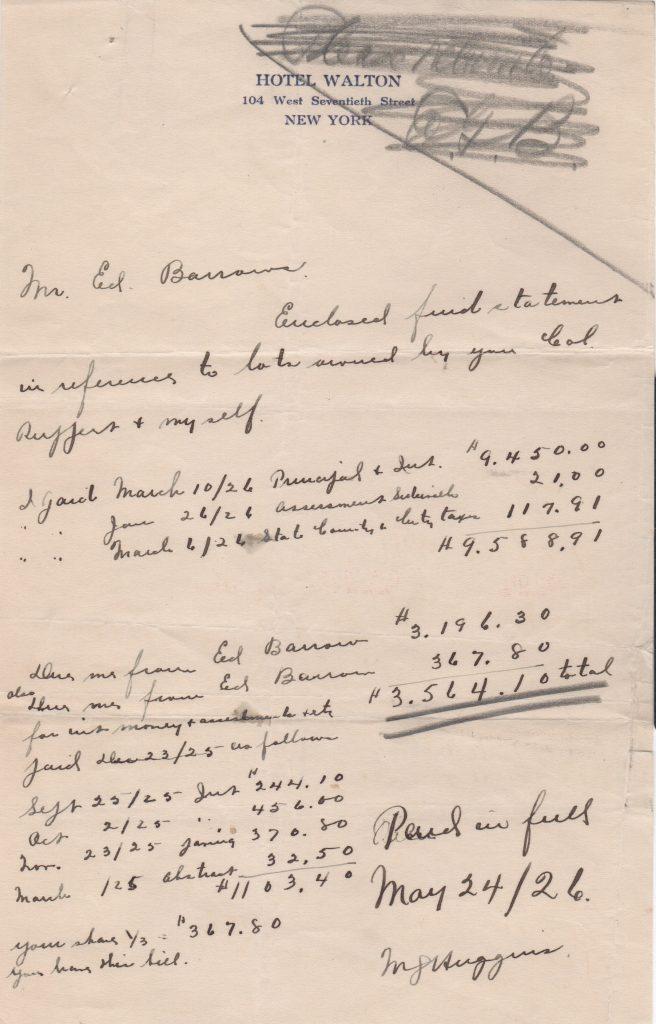 Please
E. G. B.
HOTEL WALTON
104 West Seventieth Street
NEW YORK
Mr. Ed. Barrows.
Enclosed find statement
in reference to lots owned by you Col.
Ruppert & myself.
I paid March 10/26 Principal & Int. $9.450.00
" " Jan 26/26 assessment Sidewalk 21,00
" " March 6/26 State County & City taxes 117.91
$9.588,91
Dues me from Ed Barrow $3.196.30
also Dues me from Ed Barrow 367.80
$3.564.10 total
for int money & assessments & etc
paid Dec 23/25 as follows
Sept 25/25 Int $244.10
Oct 2/25 " 456.00
Nov. 23/25 paving 370.80
March /25 abstract 32,50
$1103,40
your share 1/3 = $367.80
You have this bill.
Paid in full
May 24/26.
M J Huggins.